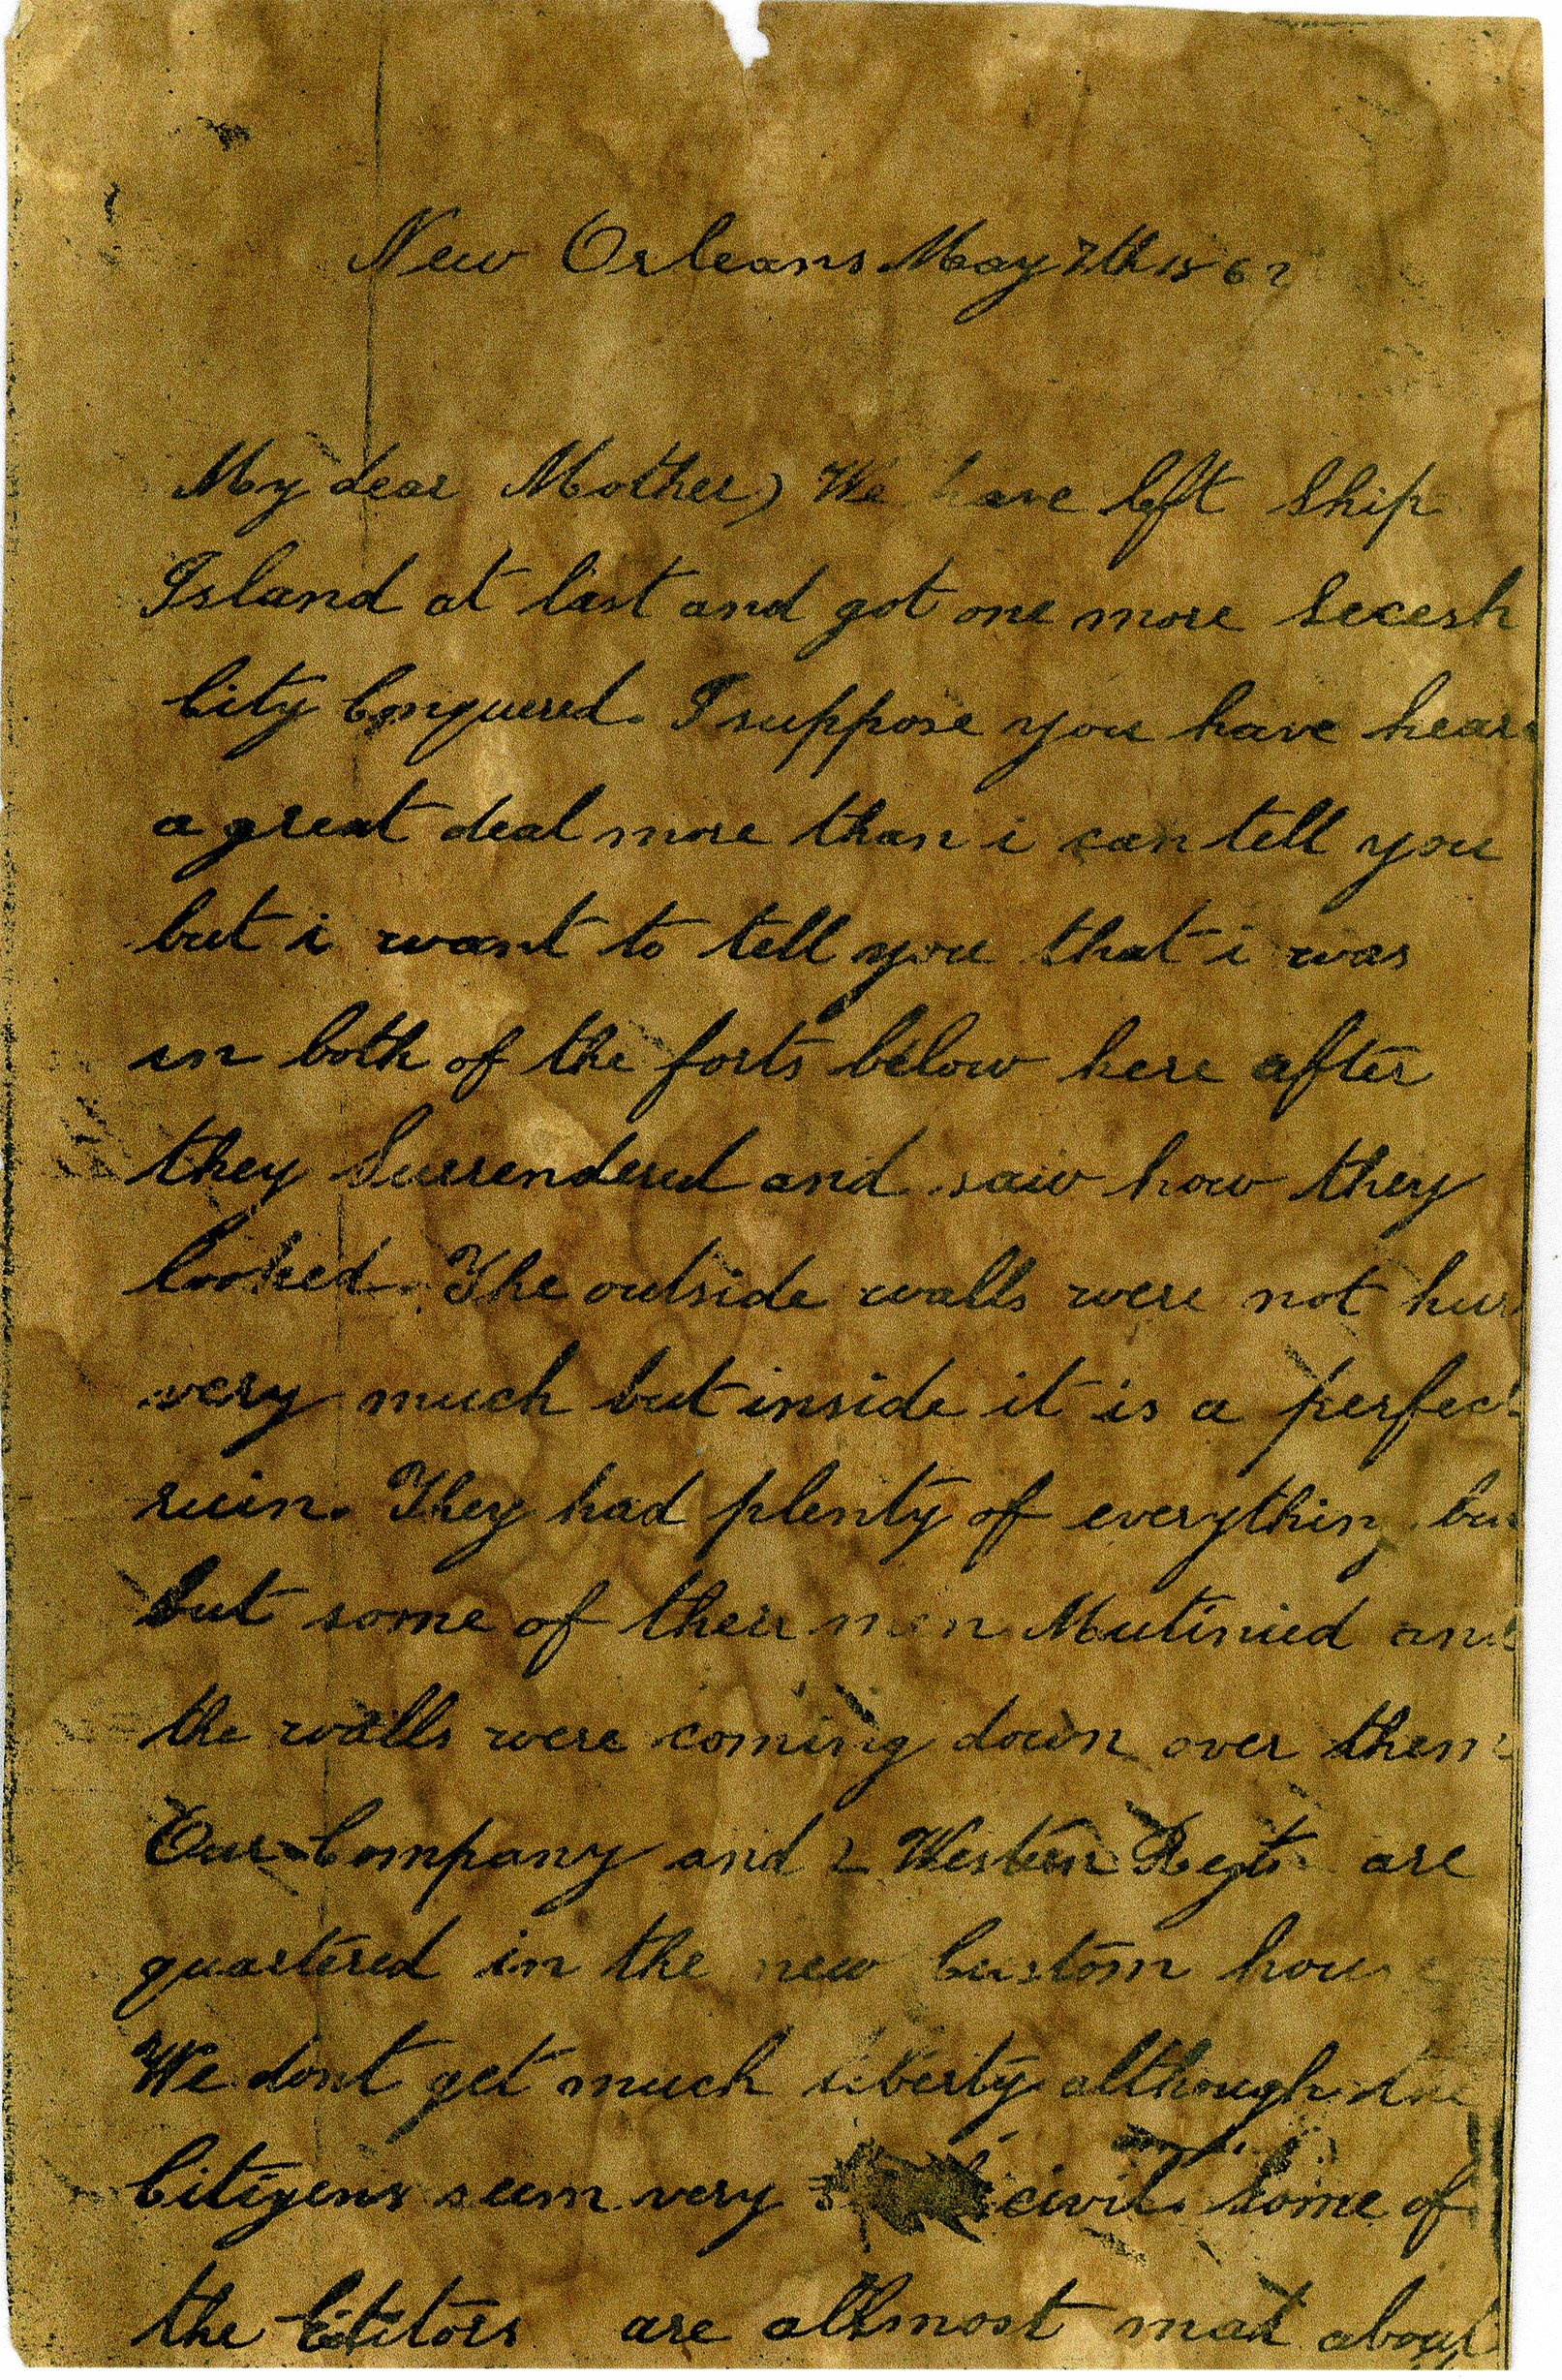 New Orleans May 7th 1862
My dear Mother) We have left Ship
Island at last and got one more Secesh
City Conquered. I suppose you have hear
a great deal more than i can tell you
but i want to tell you that i was
in both of the forts below here after
they Surrendered and saw how they
looked. The outside walls were not hur
very much but inside it is a perfect
ruin. They had plenty of everything bu
but some of their men Mutinied and
the walls were coming down over them
Our Company and 2 Western Regts are
quartered in the new Custom house
We dont get much liberty although the
Citizens seem very civil. Some of
the Editors are allmost mad about